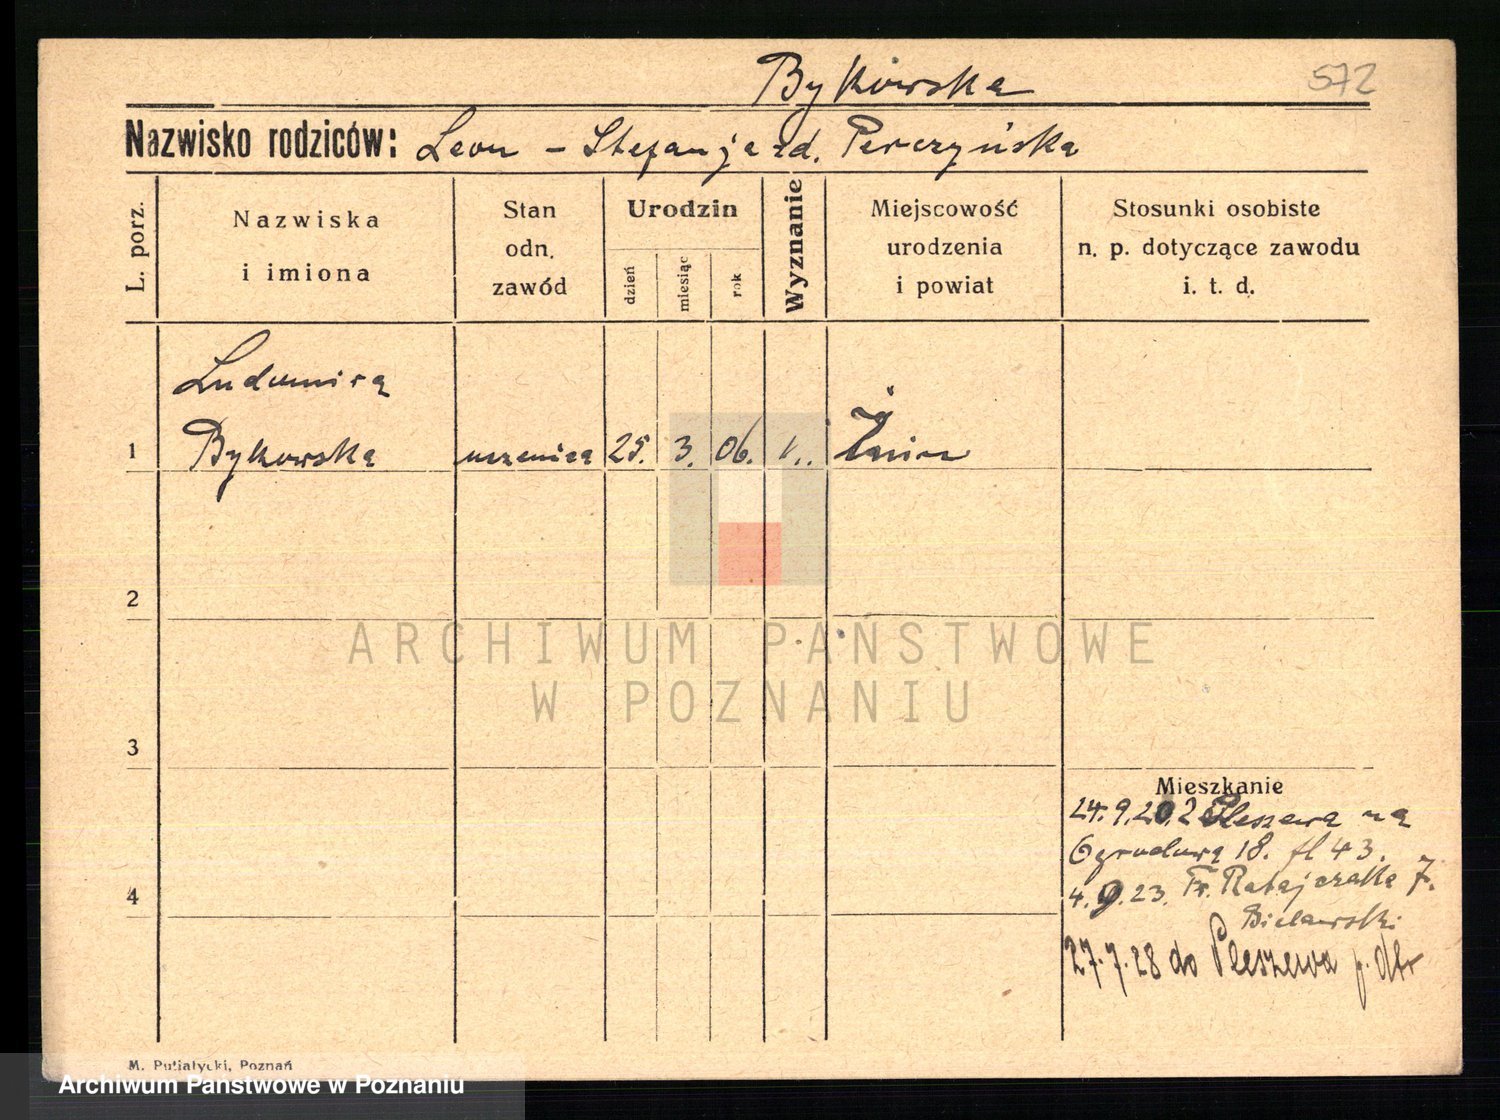 Bykowska
572
Nazwisko rodziców: Leon - Stefanja zd. Perczyńska
L. porz.
Nazwiska
i imiona
Stan
odn.
zawód
Urodzin
dzień
miesiąc
rok
Wyznanie
Miejscowość
urodzenia
i powiat
Stosunki osobiste
n. p. dotyczące zawodu
i. t. d.
Ludomira
1 Bykowska uczenica 25. 3. 06. Żnin
2
3
4
ARCHIWUM PAŃSTWOWE
W POZNANIU
Mieszkanie
24.9.20. z Pleszewa na
Ogrodową 18. fl 43.
4.9.23. Fr. Ratajczaka 7.
Bielawski
27.7.28 do Pleszewa
M. Putiatycki, Poznań
Archiwum Państwowe w Poznaniu